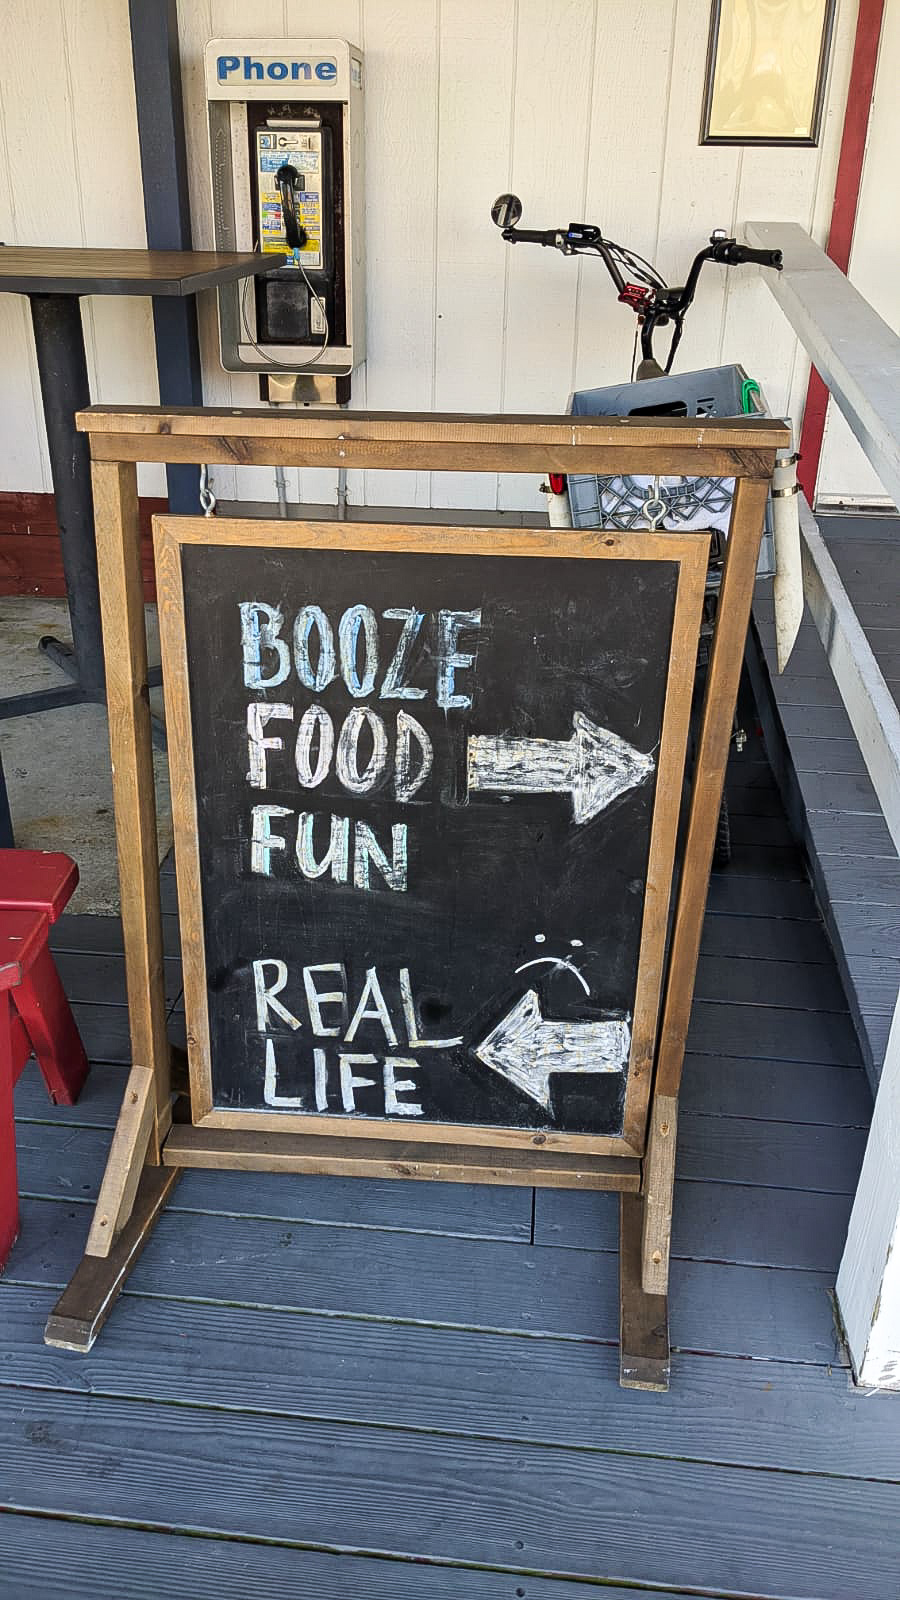 Phone
BOOZE
FOOD
FUN
REAL
LIFE